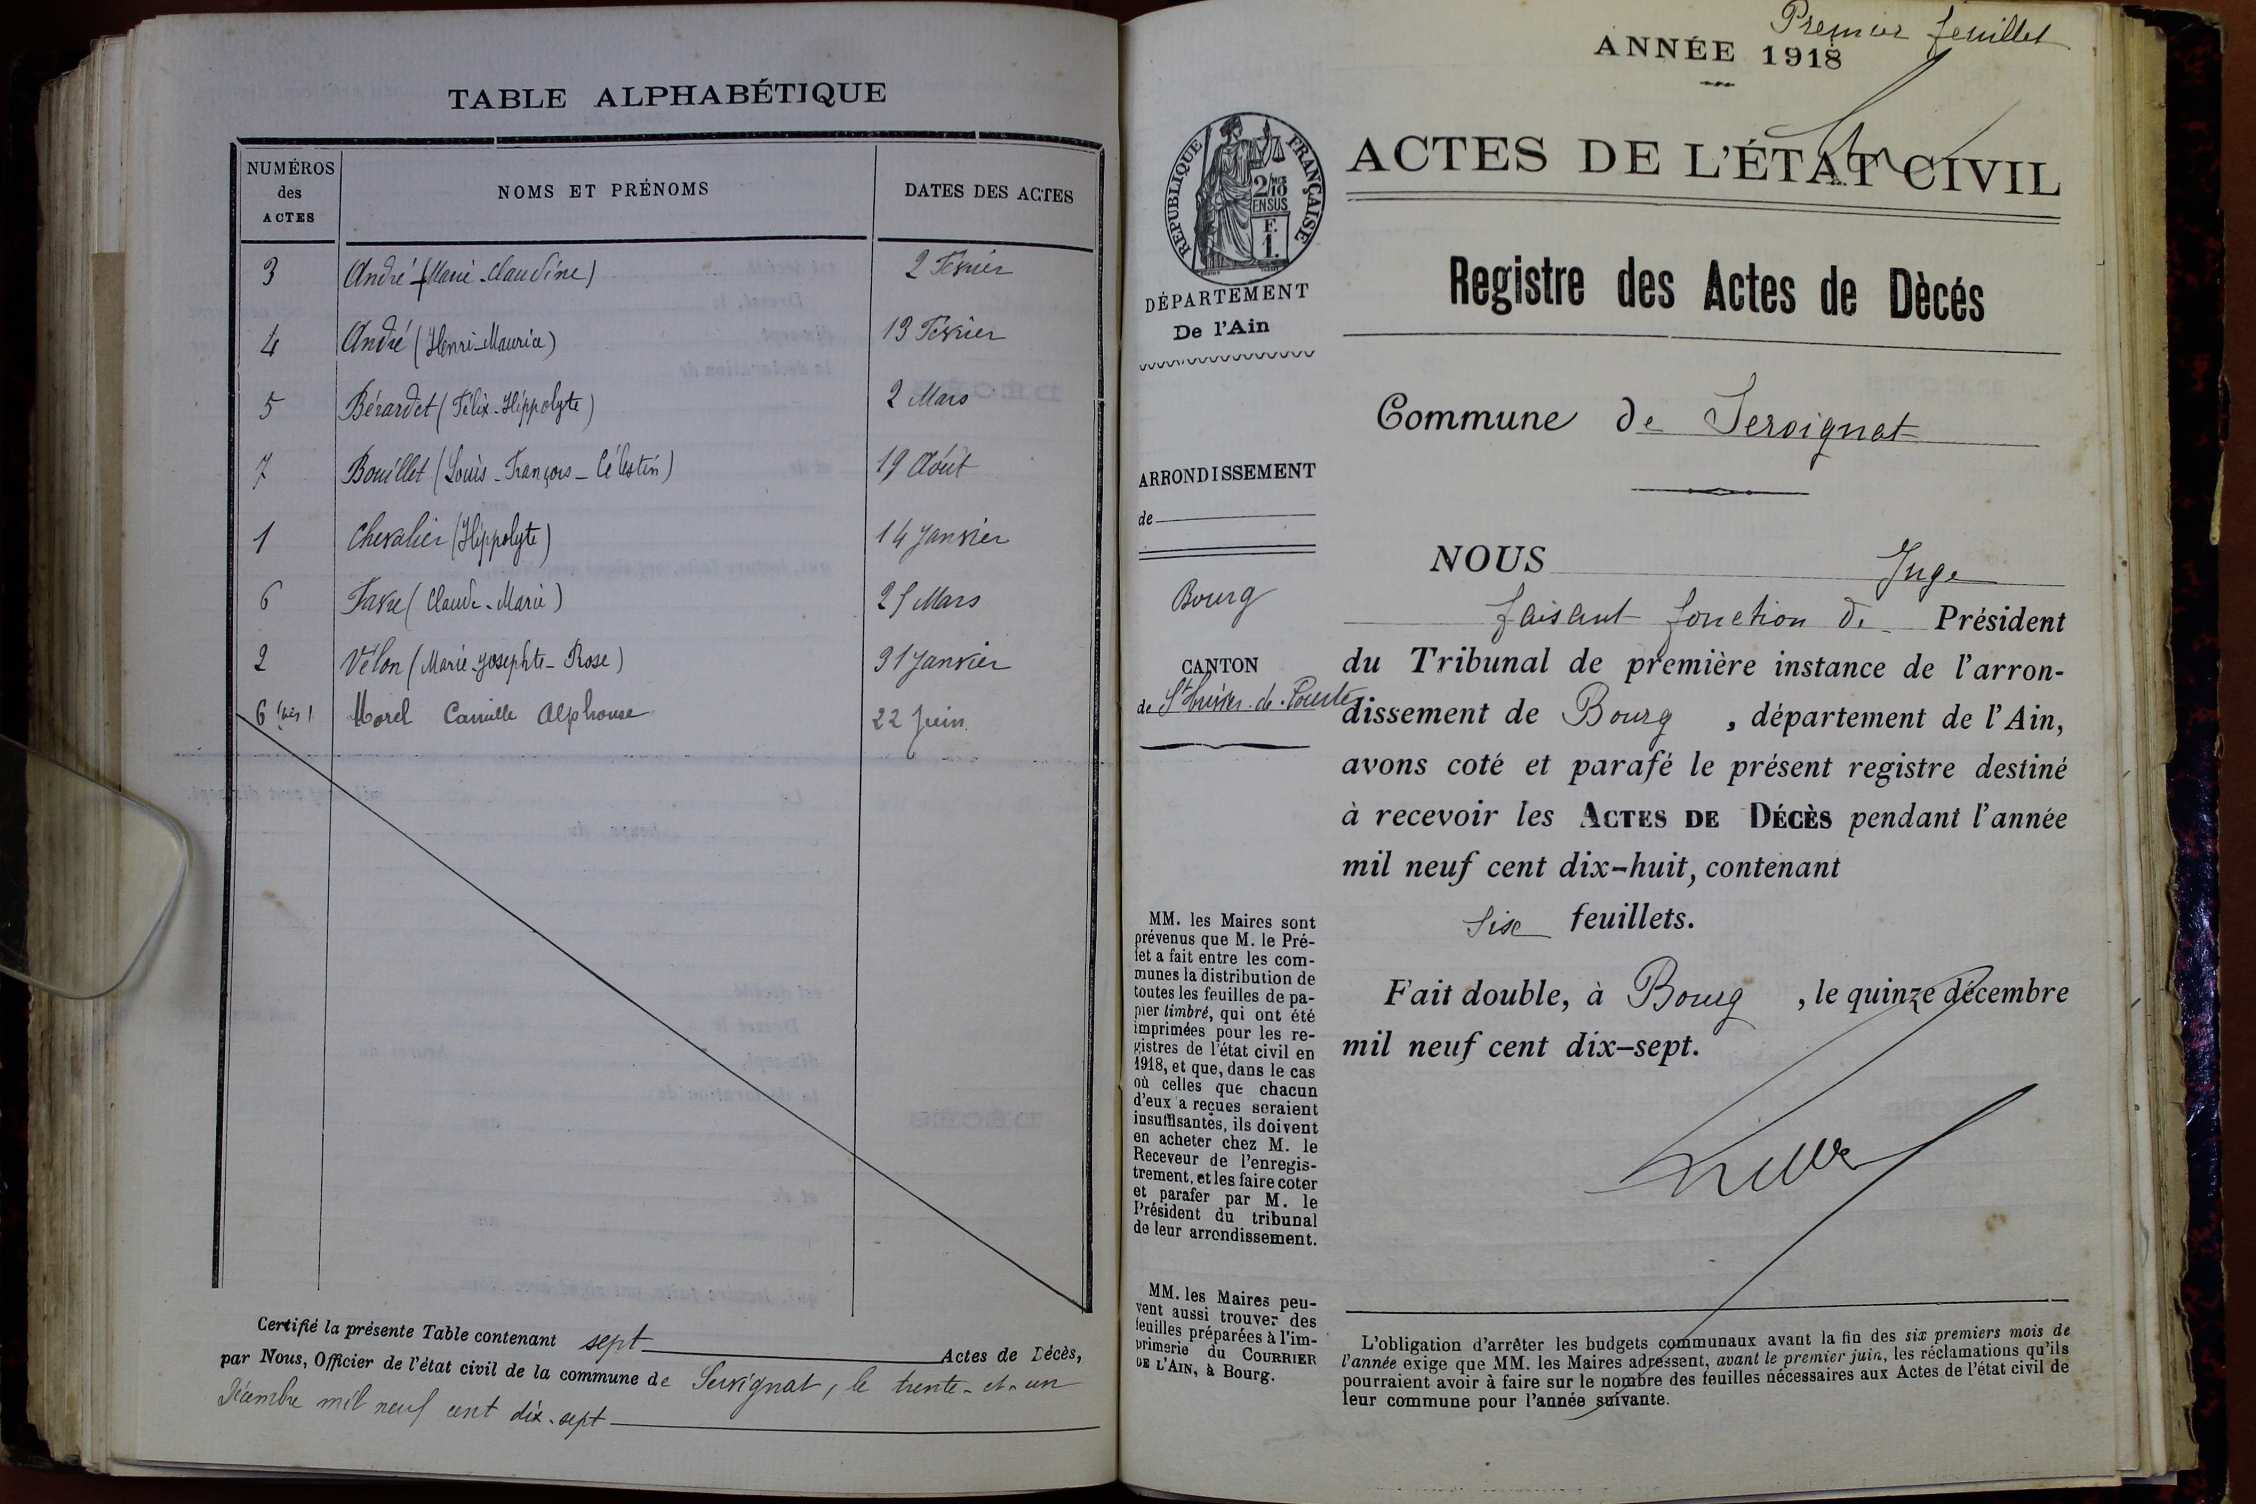 TABLE ALPHABÉTIQUE
NUMÉROS des ACTES NOMS ET PRÉNOMS DATES DES ACTES
3 André (Marie-Claudine) 2 Février
4 André (Henri-Maurice) 13 Février
5 Bérardet (Félix-Hippolyte) 2 Mars
7 Bouillet (Louis-François-Célestin) 19 Août
1 Chevalier (Hippolyte) 14 Janvier
6 Favre (Claude-Marie) 25 Mars
2 Vélon (Marie-Josephte-Rose) 31 Janvier
6 (bis) Morel Camille Alphonse 22 Juin
Certifié la présente Table contenant sept Actes de Décès,
par Nous, Officier de l'état civil de la commune de Servignat, le trente-et-un
Décembre mil neuf cent dix-sept
Premier feuillet
ANNÉE 1918
RÉPUBLIQUE FRANÇAISE
2/10
EN SUS
F.
1.
DÉPARTEMENT
De l'Ain
ARRONDISSEMENT
de
Bourg
CANTON
de St Trivier-de-Courtes
MM. les Maires sont
prévenus que M. le Pré-
fet a fait entre les com-
munes la distribution de
toutes les feuilles de pa-
pier timbré, qui ont été
imprimées pour les re-
gistres de l'état civil en
1918, et que, dans le cas
où celles que chacun
d'eux a reçues seraient
insuffisantes, ils doivent
en acheter chez M. le
Receveur de l'enregis-
trement, et les faire coter
et parafer par M. le
Président du tribunal
de leur arrondissement.
MM. les Maires peu-
vent aussi trouver des
feuilles préparées à l'im-
primerie du COURRIER
DE L'AIN, à Bourg.
ACTES DE L'ÉTAT CIVIL
Registre des Actes de Dècés
Commune de Servignat
NOUS Juge
faisant fonction de Président
du Tribunal de première instance de l'arron-
dissement de Bourg, département de l'Ain,
avons coté et parafé le présent registre destiné
à recevoir les ACTES DE DÉCÈS pendant l'année
mil neuf cent dix-huit, contenant
Six feuillets.
Fait double, à Bourg, le quinze décembre
mil neuf cent dix-sept.
L'obligation d'arrêter les budgets communaux avant la fin des six premiers mois de
l'année exige que MM. les Maires adressent, avant le premier juin, les réclamations qu'ils
pourraient avoir à faire sur le nombre des feuilles nécessaires aux Actes de l'état civil de
leur commune pour l'année suivante.